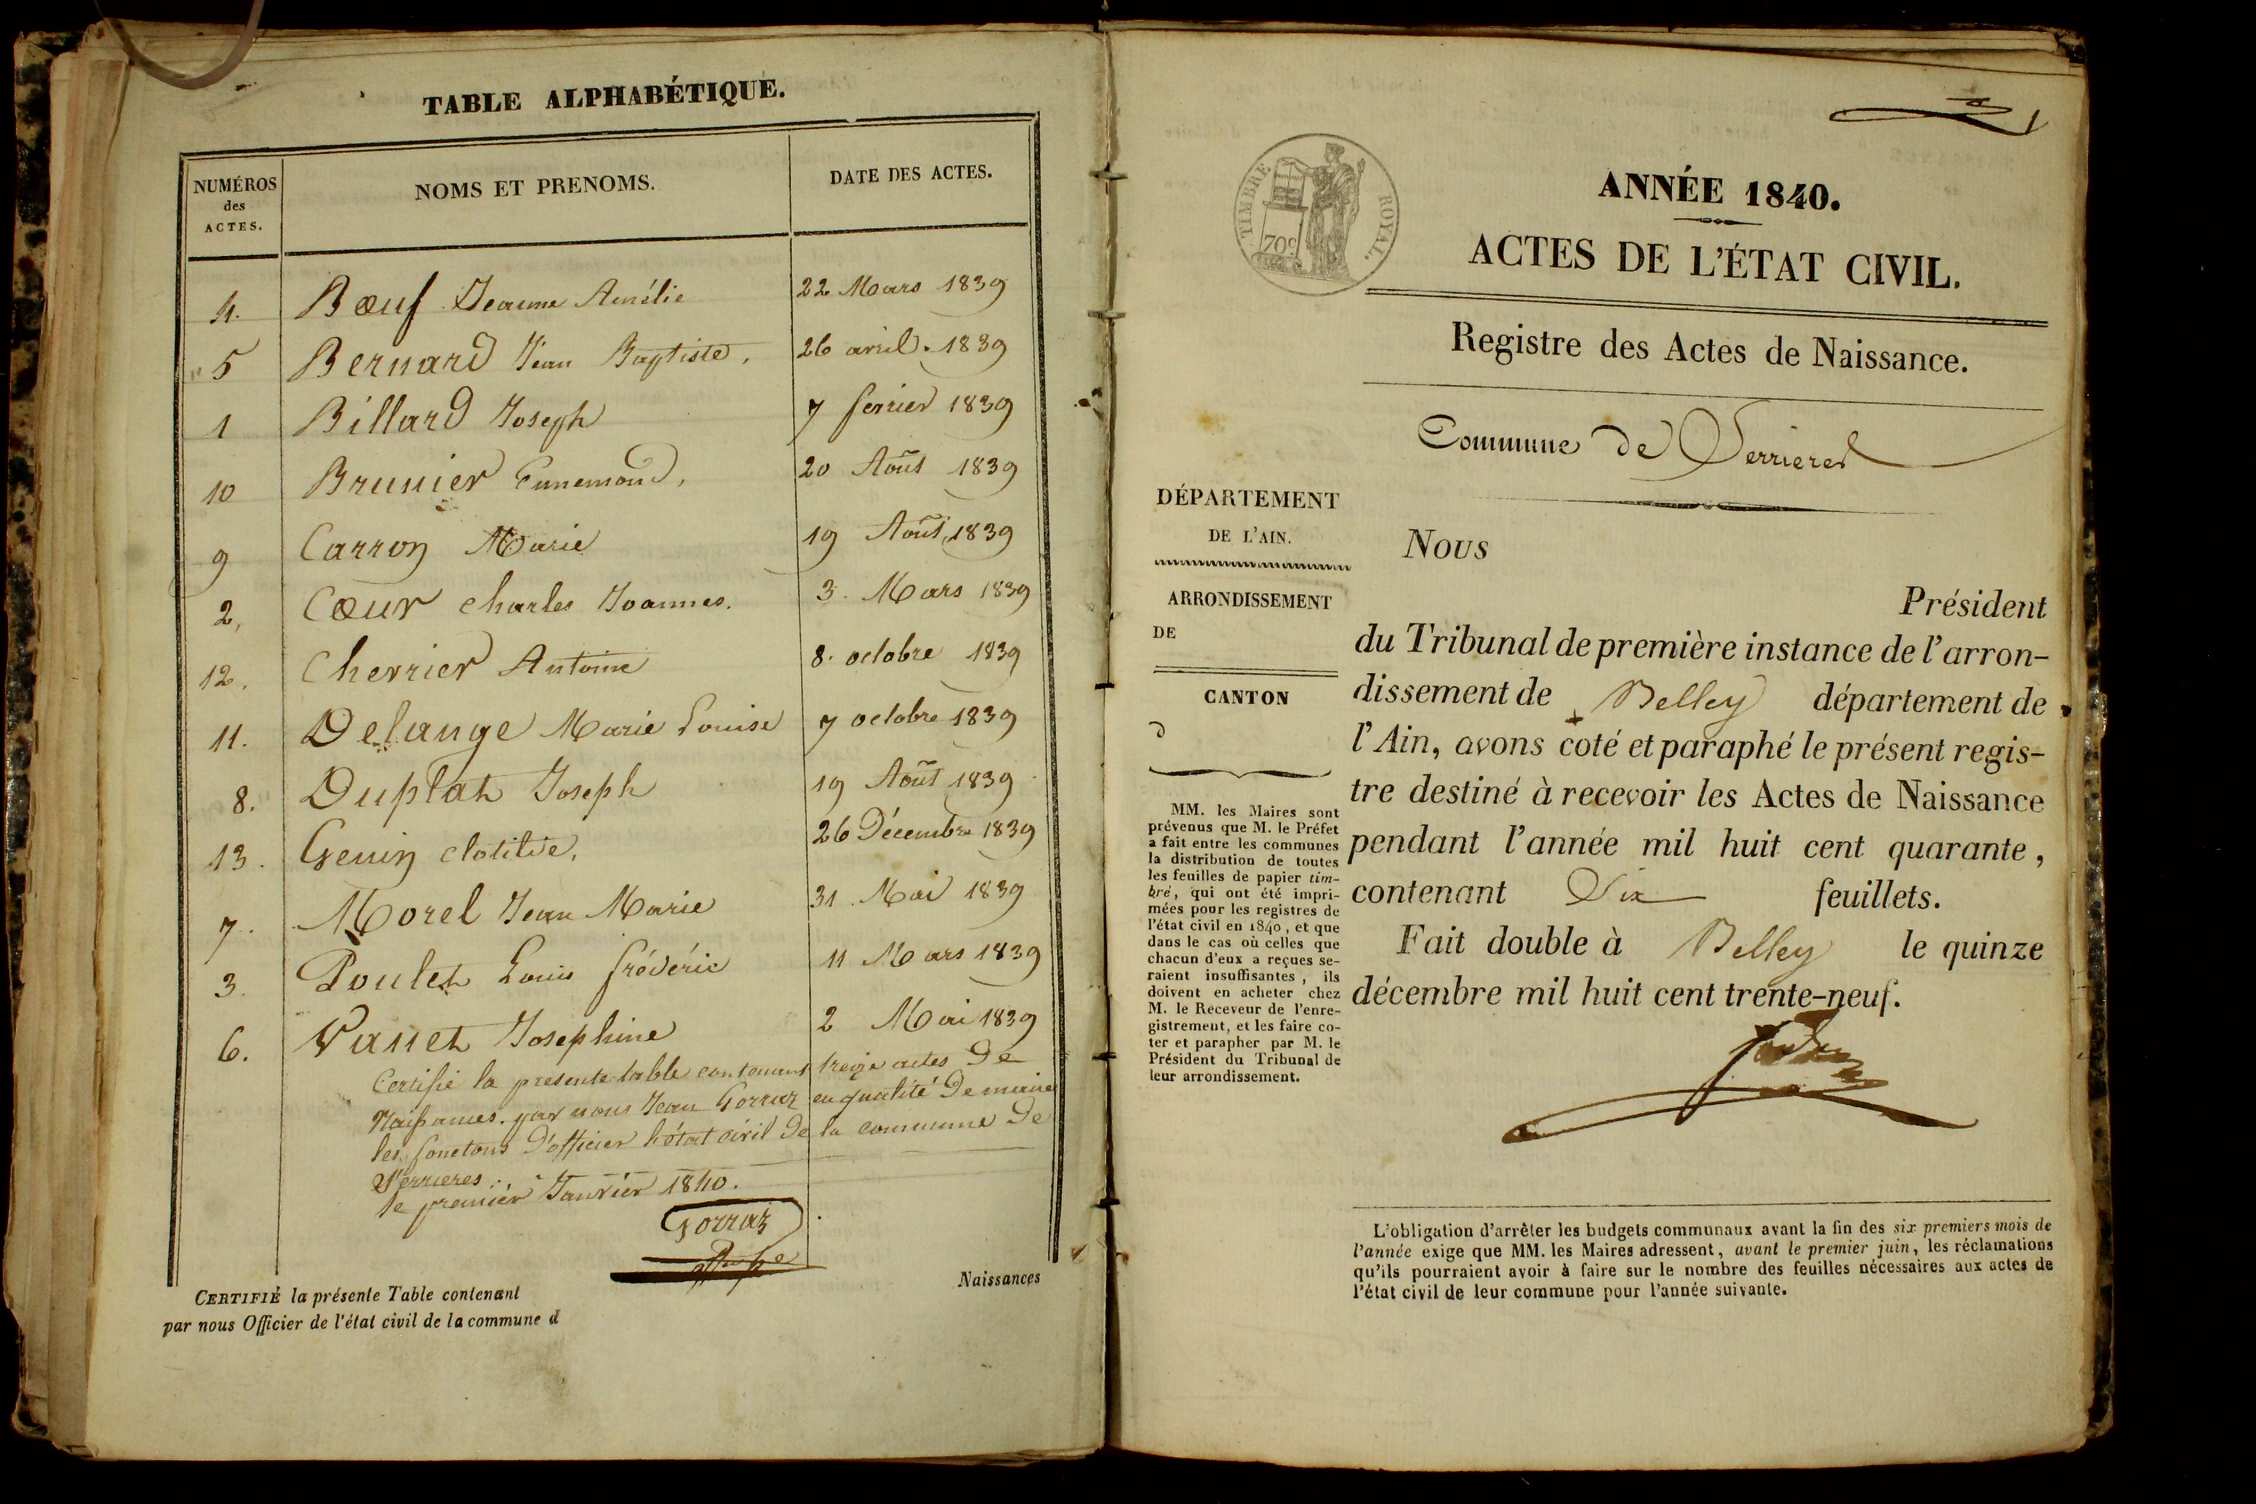 TABLE ALPHABÉTIQUE.
NUMÉROS des ACTES. NOMS ET PRENOMS. DATE DES ACTES.
4. Bœuf Jeanne Amélie 22 Mars 1839
5 Bernard Jean Baptiste, 26 avril. 1839
1 Billard Joseph 7 fevrier 1839
10 Brunier Ennemond, 20 Août 1839
9 Carron Marie 19 Août 1839
2, Cœur Charles Joannes. 3. Mars 1839
12. Cherrier Antoine 8. octobre 1839
11. Delange Marie Louise 7 octobre 1839
8. Duplat Joseph 19 Août 1839
13. Genin clotilde, 26 Décembre 1839
7. Morel Jean Marie 31 Mai 1839
3. Poulet Louis frédéric 11 Mars 1839
6. Vanet Josephine 2 Mai 1839
Certifié la présente table contenant treize actes De
Naissances. par nous Jean Gorraz en qualité De maire
les fonctons D'officier l'état civil de la commune De
Serrieres
le premier Janvier 1840.
Gorraz
CERTIFIÉ la présente Table contenant Naissances
par nous Officier de l'état civil de la commune d
1
TIMBRE ROYAL.
70c
ANNÉE 1840.
ACTES DE L'ÉTAT CIVIL.
Registre des Actes de Naissance.
Commune de Serrieres
DÉPARTEMENT
DE L'AIN.
ARRONDISSEMENT
DE
CANTON
D
MM. les Maires sont
prévenus que M. le Préfet
a fait entre les communes
la distribution de toutes
les feuilles de papier tim-
bré, qui ont été impri-
mées pour les registres de
l'état civil en 1840, et que
dans le cas où celles que
chacun d'eux a reçues se-
raient insuffisantes, ils
doivent en acheter chez
M. le Receveur de l'enre-
gistrement, et les faire co-
ter et parapher par M. le
Président du Tribunal de
leur arrondissement.
Nous
Président
du Tribunal de première instance de l'arron-
dissement de Belley département de
l'Ain, avons coté et paraphé le présent regis-
tre destiné à recevoir les Actes de Naissance
pendant l'année mil huit cent quarante,
contenant Six feuillets.
Fait double à Belley le quinze
décembre mil huit cent trente-neuf.
L'obligation d'arrêter les budgets communaux avant la fin des six premiers mois de
l'année exige que MM. les Maires adressent, avant le premier juin, les réclamations
qu'ils pourraient avoir à faire sur le nombre des feuilles nécessaires aux actes de
l'état civil de leur commune pour l'année suivante.